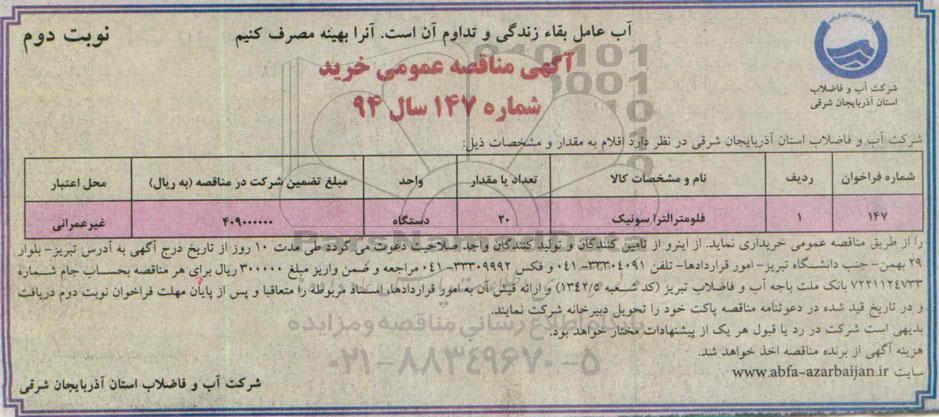 آب عامل بقاء زندگی و تداوم آن است. آنرا بهینه مصرف کنیم
نوبت دوم
آگهی مناقصه عمومی خرید
شماره ۱۴۷ سال ۹۴
شرکت آب و فاضلاب
استان آذربایجان شرقی
شرکت آب و فاضلاب استان آذربایجان شرقی در نظر دارد اقلام به مقدار و مشخصات ذیل:
شماره فراخوان ردیف نام و مشخصات کالا تعداد یا مقدار واحد مبلغ تضمین شرکت در مناقصه (به ریال) محل اعتبار
۱۴۷ ۱ فلومترالترا سونیک ۲۰ دستگاه ۴۰۹۰۰۰۰۰۰ غیرعمرانی
را از طریق مناقصه عمومی خریداری نماید. از اینرو از تامین کنندگان و تولید کنندگان واجد صلاحیت دعوت می گردد طی مدت ۱۰ روز از تاریخ درج آگهی به آدرس تبریز- بلوار
۲۹ بهمن- جنب دانشگاه تبریز- امور قراردادها- تلفن ۳۳۳۰۴۰۹۱-۰۴۱ و فکس ۳۳۳۰۹۹۹۲-۰۴۱ مراجعه و ضمن واریز مبلغ ۳۰۰۰۰۰ ریال برای هر مناقصه بحساب جام شماره
۷۲۲۱۱۲۴۷۳۳ بانک ملت باجه آب و فاضلاب تبریز (کد شعبه ۱۳۴۲/۵) و ارائه فیش آن به امور قراردادها، اسناد مربوطه را متعاقبا و پس از پایان مهلت فراخوان نوبت دوم دریافت
و در تاریخ قید شده در دعوتنامه مناقصه پاکت خود را تحویل دبیرخانه شرکت نمایند.
بدیهی است شرکت در رد یا قبول هر یک از پیشنهادات مختار خواهد بود.
هزینه آگهی از برنده مناقصه اخذ خواهد شد.
سایت www.abfa-azarbaijan.ir
شرکت آب و فاضلاب استان آذربایجان شرقی
۰۲۱-۸۸۳۴۹۶۷۰-۵